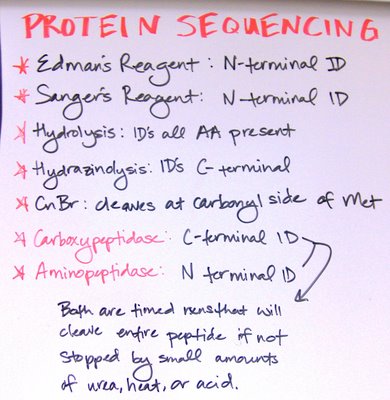 PROTEIN SEQUENCING
* Edman's Reagent : N-terminal ID
* Sanger's Reagent: N-terminal ID
* Hydrolysis: ID's all AA present
* Hydrazinolysis: ID's C-terminal
* CnBr: cleaves at carbonyl side of Met
* Carboxypeptidase: C-terminal ID
* Aminopeptidase: N terminal ID
Both are timed rxns that will
cleave entire peptide if not
stopped by small amounts
of urea, heat, or acid.